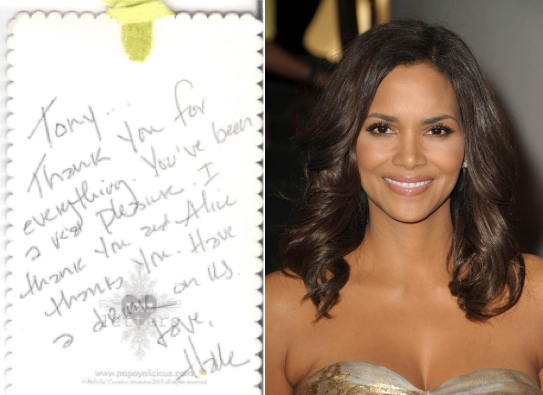 Tony...
Thank you for
everything. You've been
a real pleasure. I
thank you and Alice
thanks you. Have
a drink on us.
Love,
www.papayalicious.com